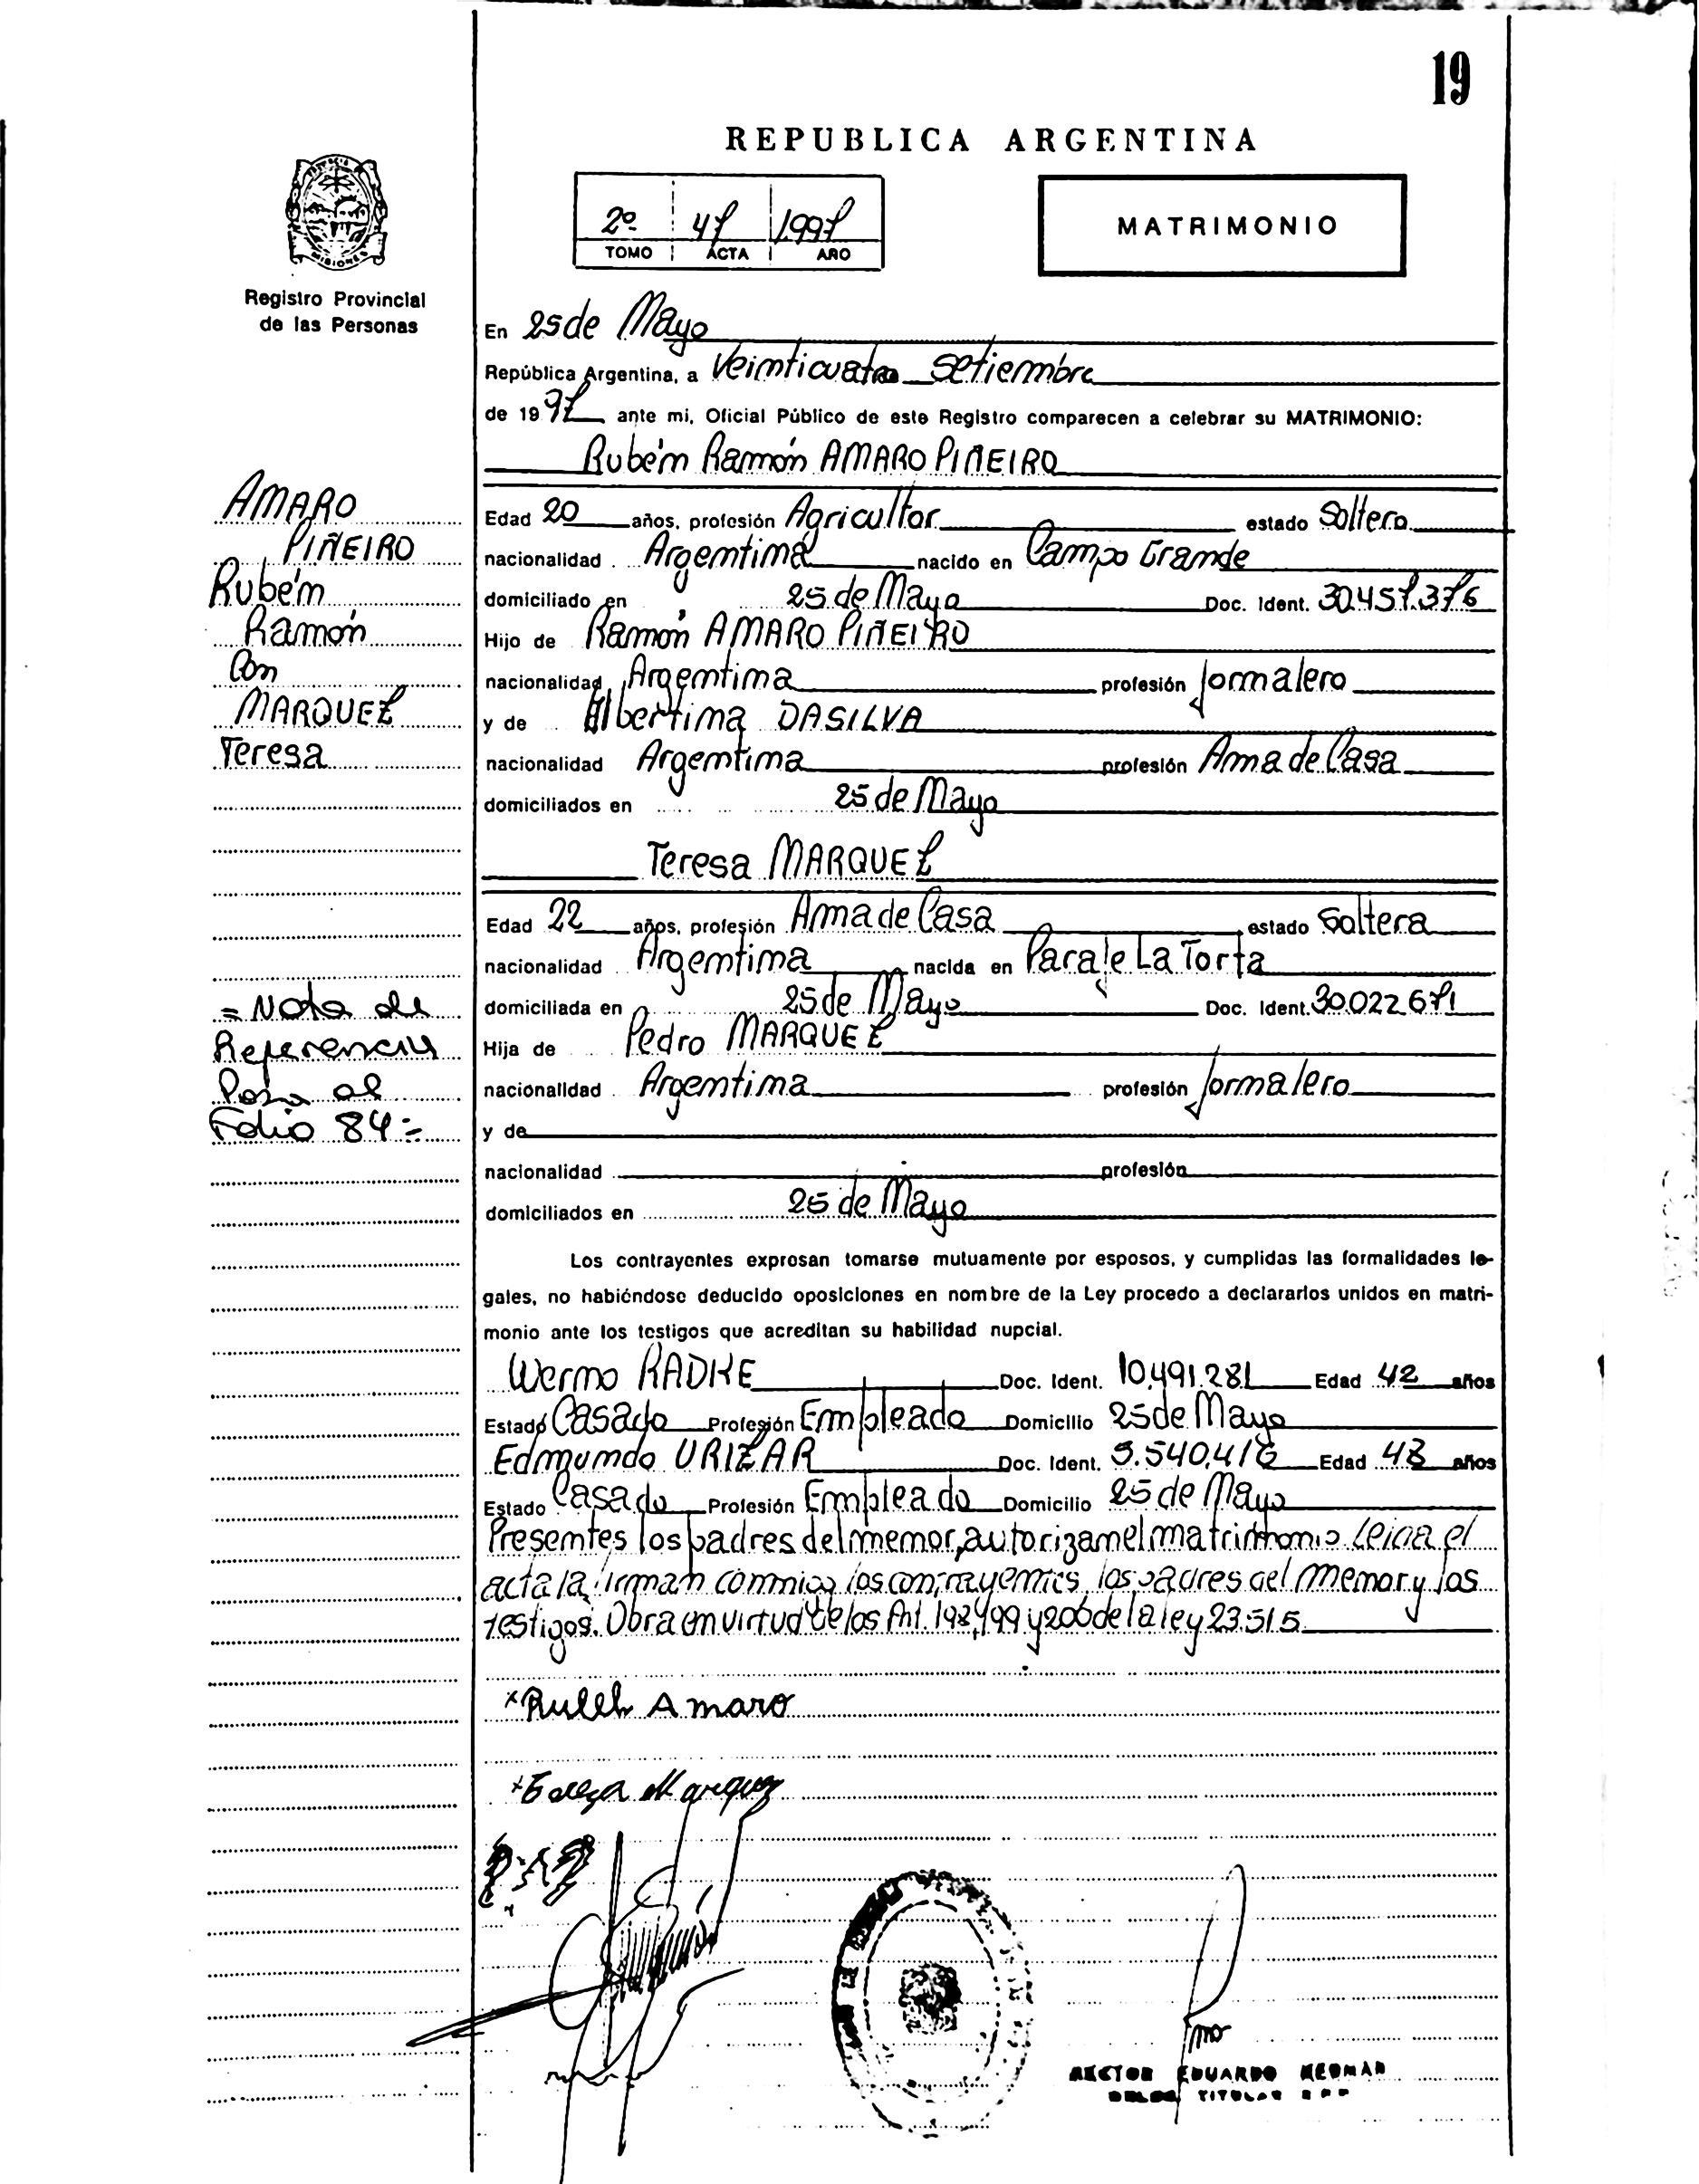 19
REPUBLICA ARGENTINA
2º 47 1997
TOMO ACTA AÑO
MATRIMONIO
MISIONES
Registro Provincial
de las Personas
En 25 de Mayo
República Argentina, a Veinticuatro Setiembre
de 1997 ante mi, Oficial Público de este Registro comparecen a celebrar su MATRIMONIO:
Rubén Ramón AMARO PIÑEIRO
AMARO
PIÑEIRO
Rubén
Ramón
Con
MARQUEZ
Teresa
Edad 20 años, profesión Agricultor estado Soltero
nacionalidad Argentina nacido en Campo Grande
domiciliado en 25 de Mayo Doc. Ident. 30.457.376
Hijo de Ramón AMARO PIÑEIRO
nacionalidad Argentina profesión Jornalero
y de Albertina DASILVA
nacionalidad Argentina profesión Ama de Casa
domiciliados en 25 de Mayo
Teresa MARQUEZ
Edad 22 años, profesión Ama de Casa estado Soltera
nacionalidad Argentina nacida en Paraje La Torta
domiciliada en 25 de Mayo Doc. Ident. 30.022.671
Hija de Pedro MARQUEZ
nacionalidad Argentina profesión Jornalero
y de
nacionalidad profesión
domiciliados en 25 de Mayo
= Nota de
Referencia
Pasa al
Folio 84 =
Los contrayentes expresan tomarse mutuamente por esposos, y cumplidas las formalidades le-
gales, no habiéndose deducido oposiciones en nombre de la Ley procedo a declararlos unidos en matri-
monio ante los testigos que acreditan su habilidad nupcial.
Werno RADKE Doc. Ident. 10.491.281 Edad 42 años
Estado Casado Profesión Empleado Domicilio 25 de Mayo
Edmundo URIZAR Doc. Ident. 5.540.416 Edad 48 años
Estado Casado Profesión Empleado Domicilio 25 de Mayo
Presentes los padres del menor, autorizan el matrimonio. Leida el
acta la firman conmigo los contrayentes, los padres del menor y los
testigos. Obra en virtud de los Art. 198, 199 y 206 de la ley 23.515
x Rubén Amaro
x Tereza Marquez
HECTOR EDUARDO
TITULAR